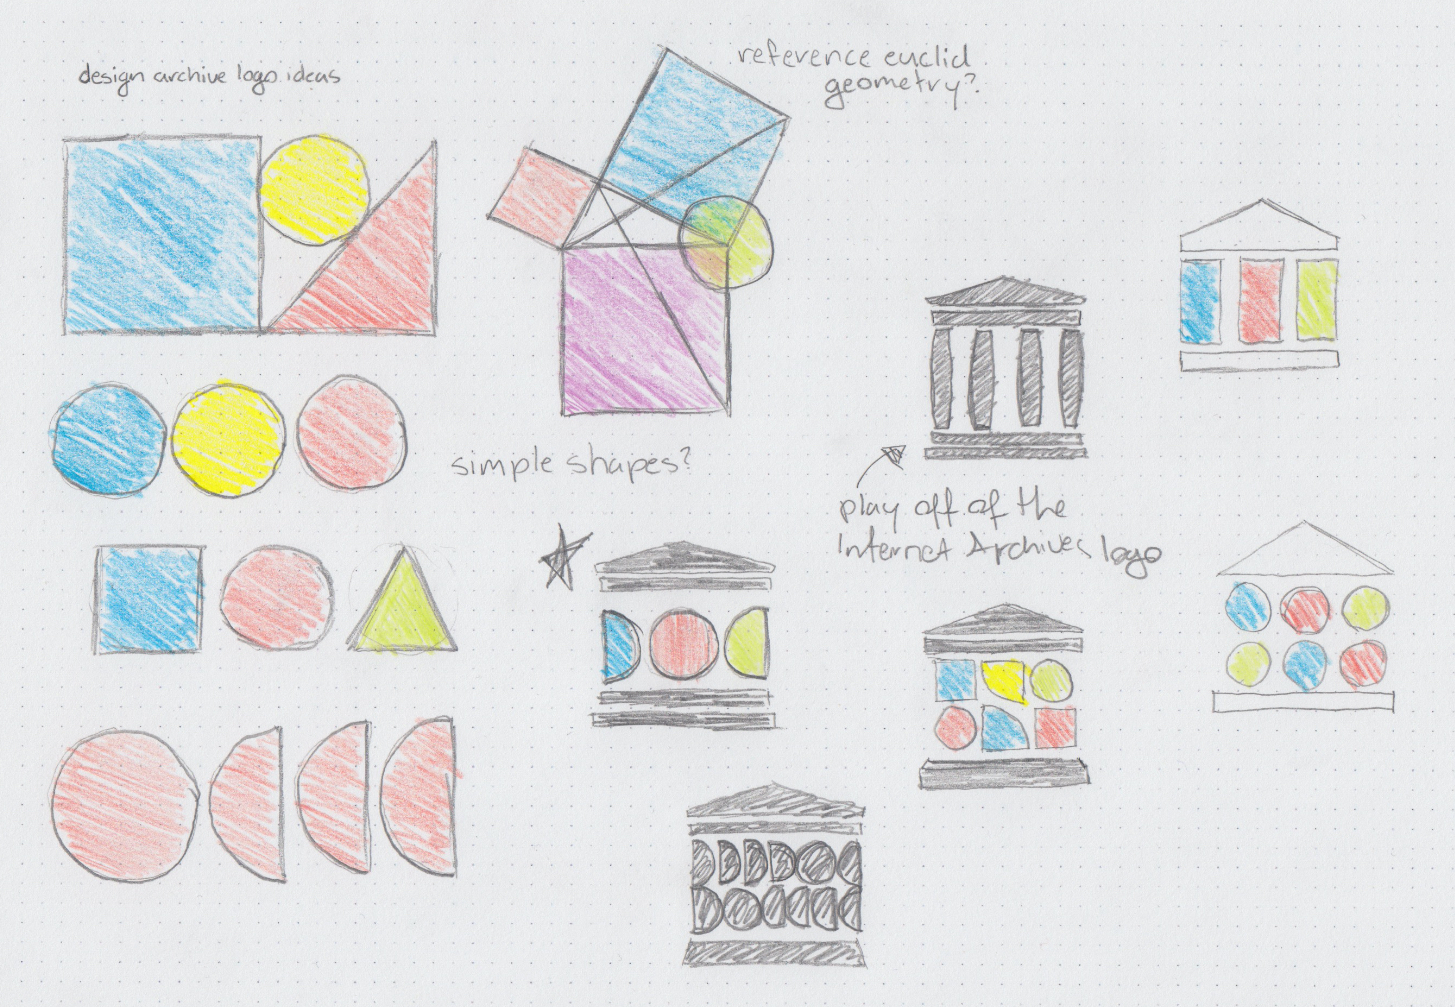 design archive logo ideas
reference euclid
geometry?
simple shapes?
play off of the
Internet Archives logo